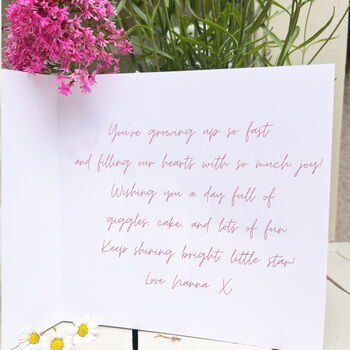 You're growing up so fast
and filling our hearts with so much joy!
Wishing you a day full of
giggles, cake, and lots of fun
Keep shining bright, little star!
Love Nanna X